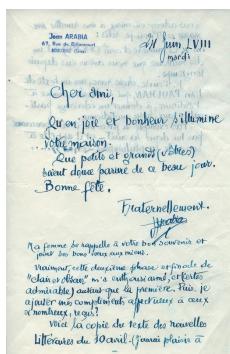 Jean ARABIA
24 Juin LVIII
mardi
Cher Ami,
Qu'en joie et bonheur s'illumine
votre maison.
Que petits et grands (vôtres)
soient douce parure de ce beau jour.
Bonne fête.
Fraternellement.
Ma femme se rappelle à votre bon souvenir et
joint ses bons vœux aux miens.
Vraiment, cette deuxième phase et finale de
m'a enthousiasmé, (et certes
admirable) autant que la première. Puis-je
ajouter mes compliments affectueux à ceux
nombreux, reçus?
Voici la copie du texte des nouvelles
Littéraires du 10 avril. (j'aurai plaisir à